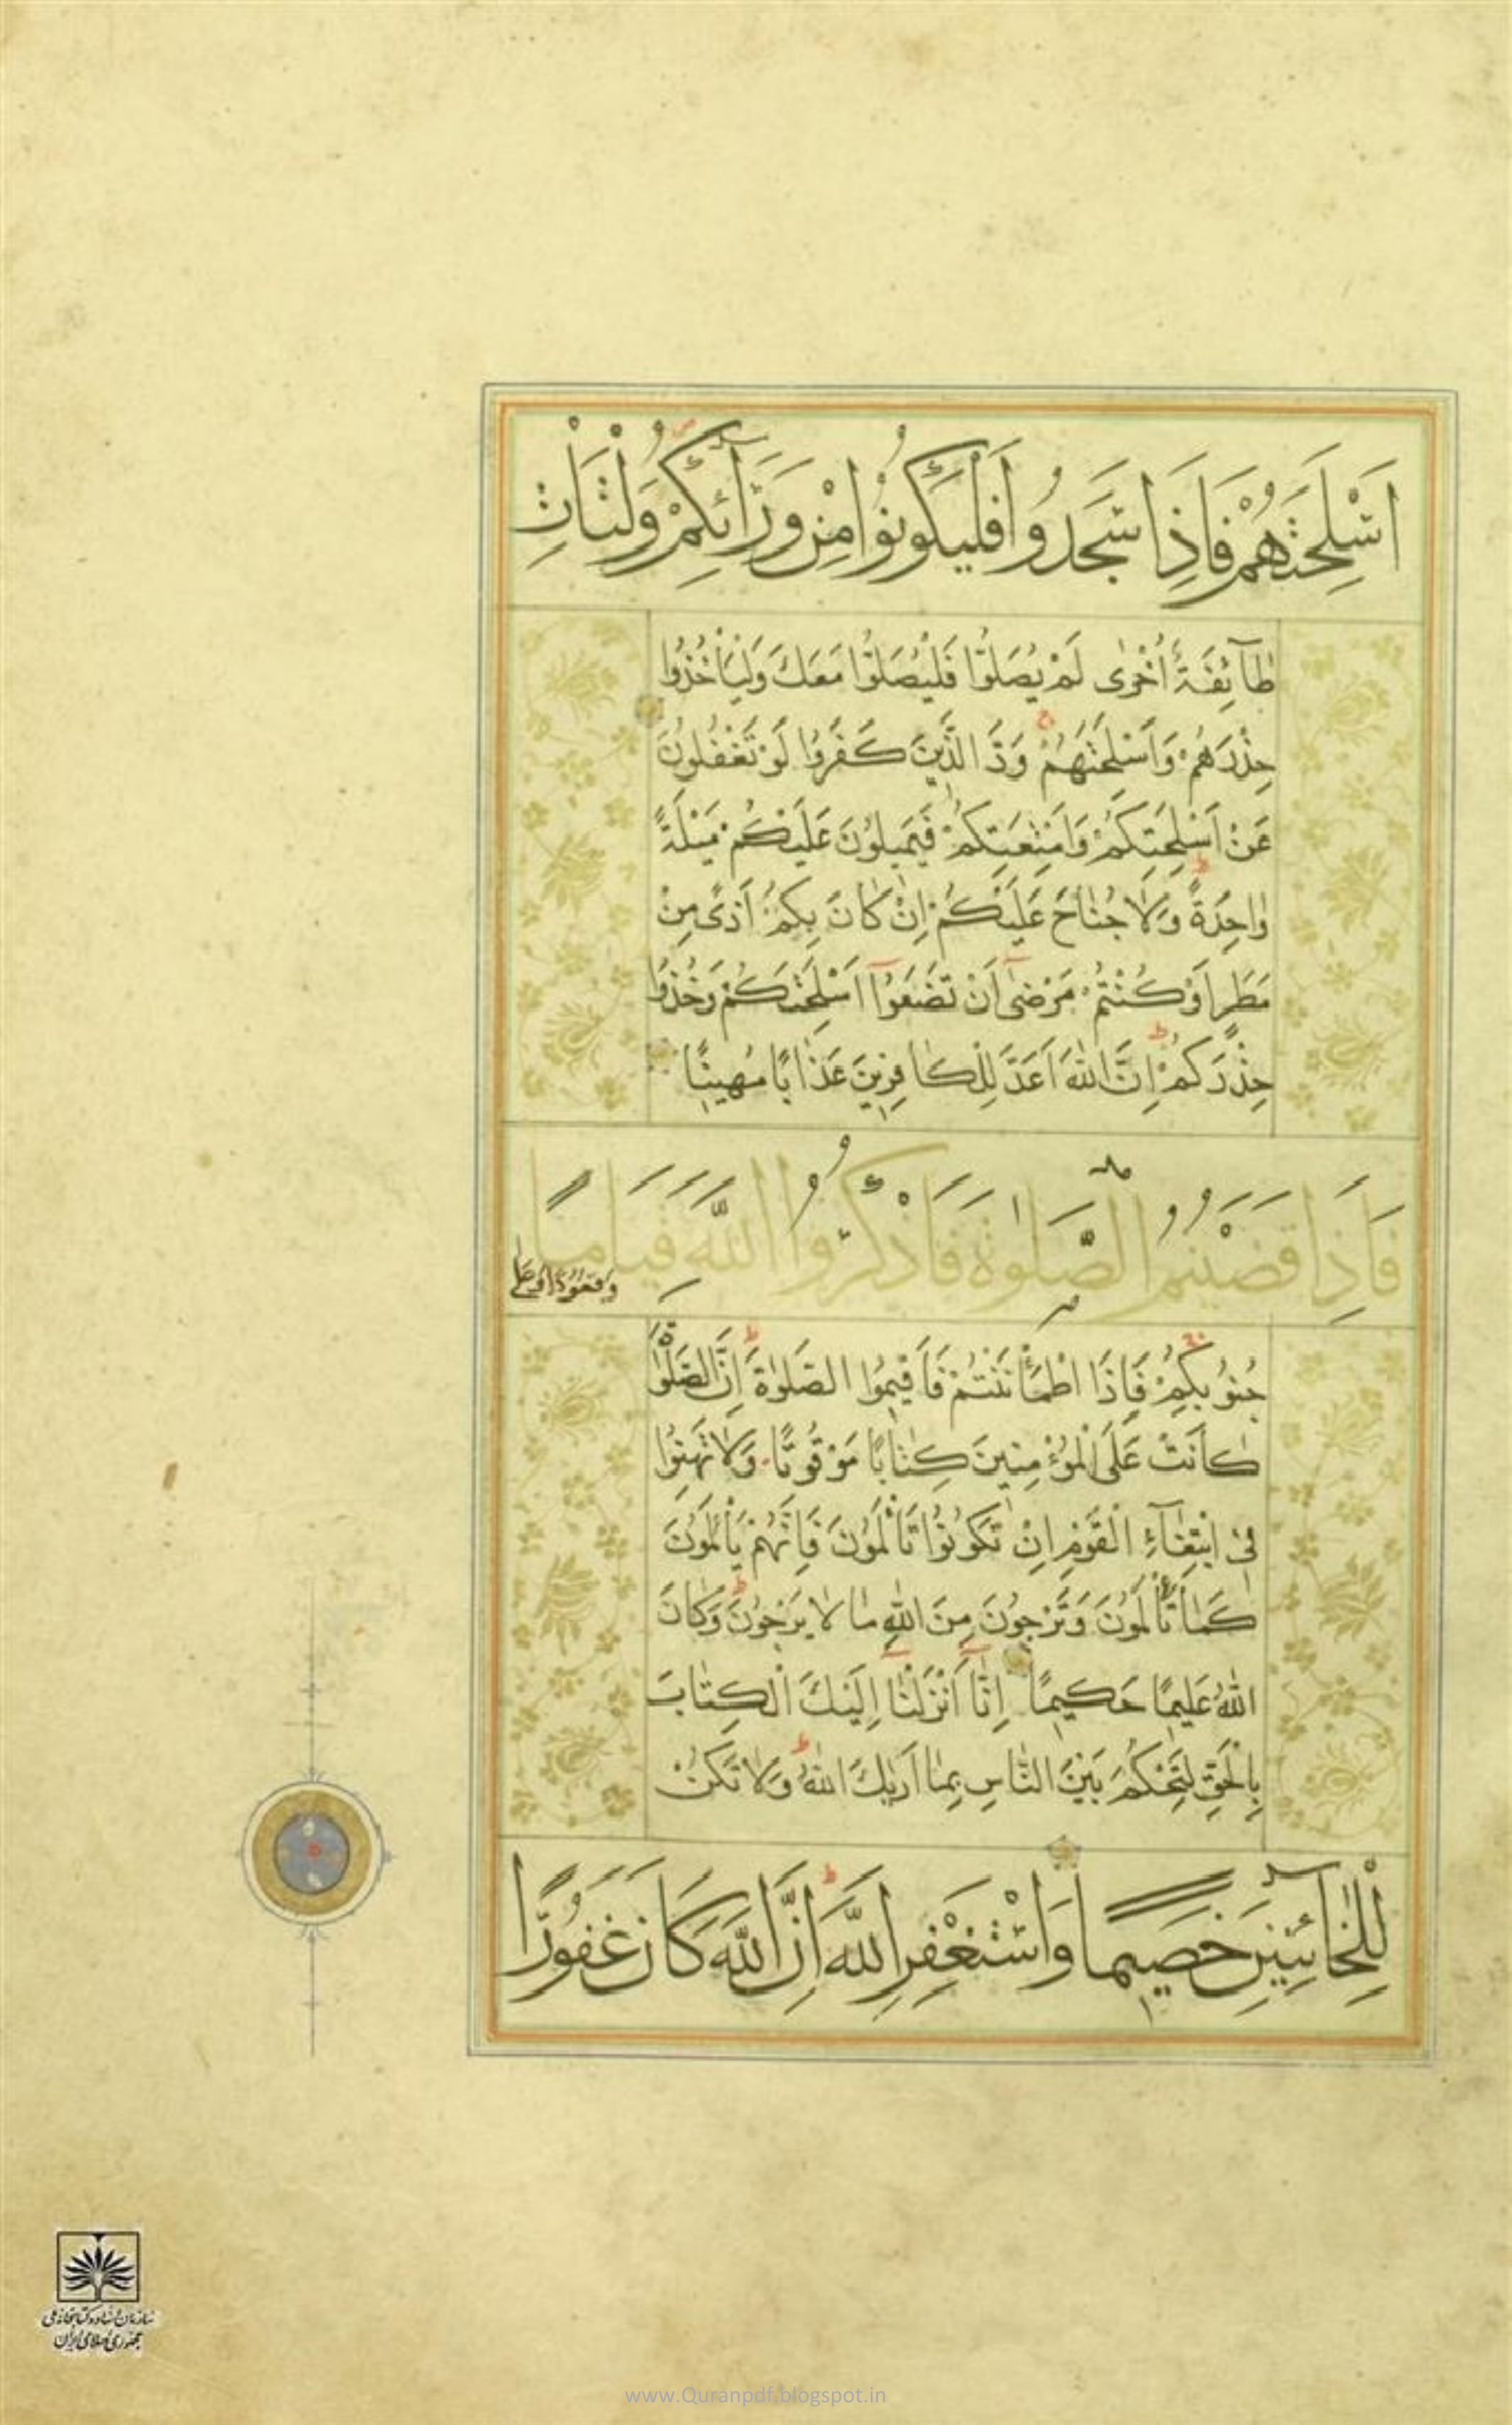 اَسْلِحَتَهُمْ فَاِذَا سَجَدُوا فَلْيَكُونُوا مِنْ وَرَآئِكُمْ وَلْتَاْتِ
طَآئِفَةٌ اُخْرٰى لَمْ يُصَلُّوا فَلْيُصَلُّوا مَعَكَ وَلْيَاْخُذُوا
حِذْرَهُمْ وَاَسْلِحَتَهُمْ وَدَّ الَّذِينَ كَفَرُوا لَوْ تَغْفُلُونَ
عَنْ اَسْلِحَتِكُمْ وَاَمْتِعَتِكُمْ فَيَمِيلُونَ عَلَيْكُمْ مَيْلَةً
وٰاحِدَةً وَلٰا جُنٰاحَ عَلَيْكُمْ اِنْ كٰانَ بِكُمْ اَذًى مِنْ
مَطَرٍ اَوْ كُنْتُمْ مَرْضٰى اَنْ تَضَعُوٓا اَسْلِحَتَكُمْ وَخُذُوا
حِذْرَكُمْ اِنَّ اللّٰهَ اَعَدَّ لِلْكٰافِرِينَ عَذٰابًا مُهِينًا
فَاِذَا قَضَيْتُمُ الصَّلٰوةَ فَاذْكُرُوا اللّٰهَ قِيَامًا
وَقُعُودًا وَعَلٰى
جُنُوبِكُمْ فَاِذَا اطْمَاْنَنْتُمْ فَاَقِيمُوا الصَّلٰوةَ اِنَّ الصَّلٰوةَ
كٰانَتْ عَلَى الْمُؤْمِنِينَ كِتٰابًا مَوْقُوتًا وَلٰا تَهِنُوا
فِى ابْتِغٰٓاءِ الْقَوْمِ اِنْ تَكُونُوا تَاْلَمُونَ فَاِنَّهُمْ يَاْلَمُونَ
كَمٰا تَاْلَمُونَ وَتَرْجُونَ مِنَ اللّٰهِ مٰا لٰا يَرْجُونَ وَكٰانَ
اللّٰهُ عَلِيمًا حَكِيمًا اِنّٰٓا اَنْزَلْنٰٓا اِلَيْكَ الْكِتٰابَ
بِالْحَقِّ لِتَحْكُمَ بَيْنَ النّٰاسِ بِمٰا اَرٰيكَ اللّٰهُ وَلٰا تَكُنْ
لِلْخٰٓائِنِينَ خَصِيمًا وَاسْتَغْفِرِ اللّٰهَ اِنَّ اللّٰهَ كَانَ غَفُورًا
سازمان اسناد و کتابخانه ملی
جمهوری اسلامی ایران
www.Quranpdf.blogspot.in